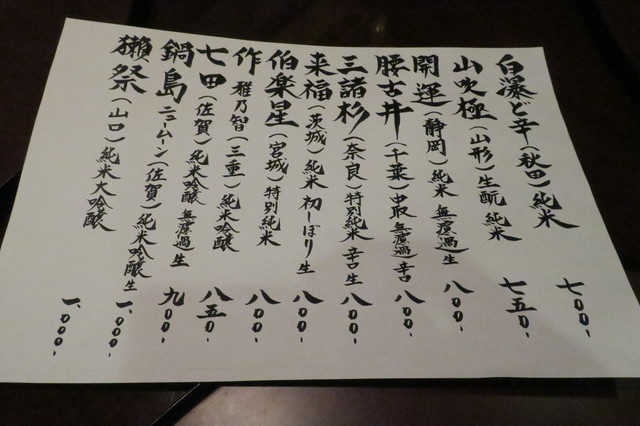 白瀑ど辛(秋田)純米 七〇〇-
山吹極(山形)生酛純米 七五〇-
開運(静岡)純米無濾過生 八〇〇-
腰古井(千葉)中取無濾過辛口 八〇〇-
三諸杉(奈良)特別純米辛口生 八〇〇-
来福(茨城)純米初しぼり生 八〇〇-
伯楽星(宮城)特別純米 八〇〇-
作 雅乃智(三重)純米吟醸 八五〇-
七田(佐賀)純米吟醸無濾過生 九〇〇-
鍋島ニュームーン(佐賀)純米吟醸生 一、〇〇〇-
獺祭(山口)純米大吟醸 一、〇〇〇-